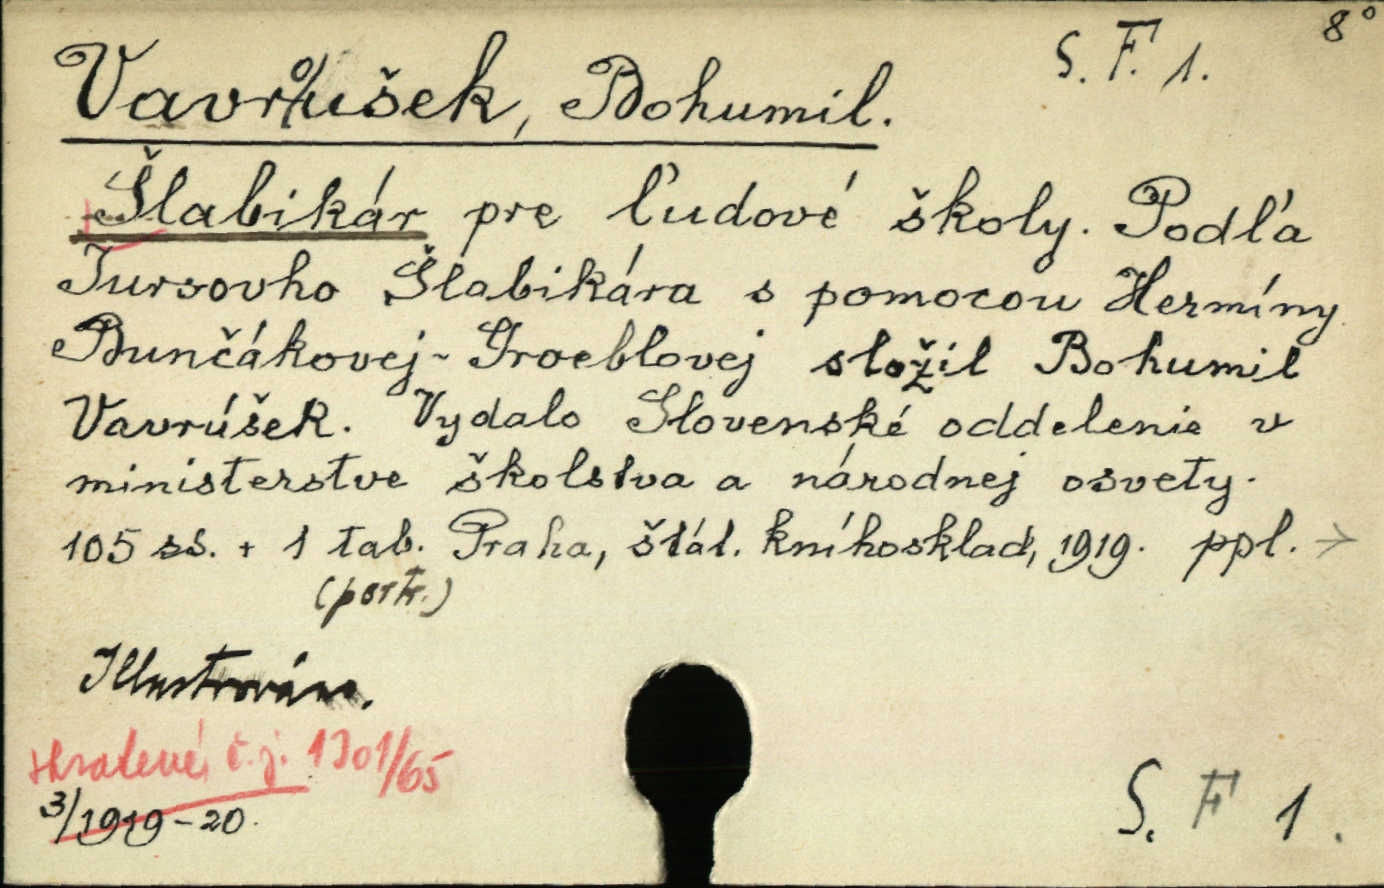 8°
S. F. 1.
Vavrůšek, Bohumil.
Šlabikár pre ľudové školy. Podľa
Jursovho Šlabikára s pomocou Hermíny
Bunčákovej-Groeblovej složil Bohumil
Vavrúšek. Vydalo Slovenské oddelenie v
ministerstve školstva a národnej osvety.
105 ss. + 1 tab. Praha, štát. kníhosklad, 1919. ppl. →
(portr.)
Illustrováno.
č.j. 1301/65
3/1919-20.
S. F 1.